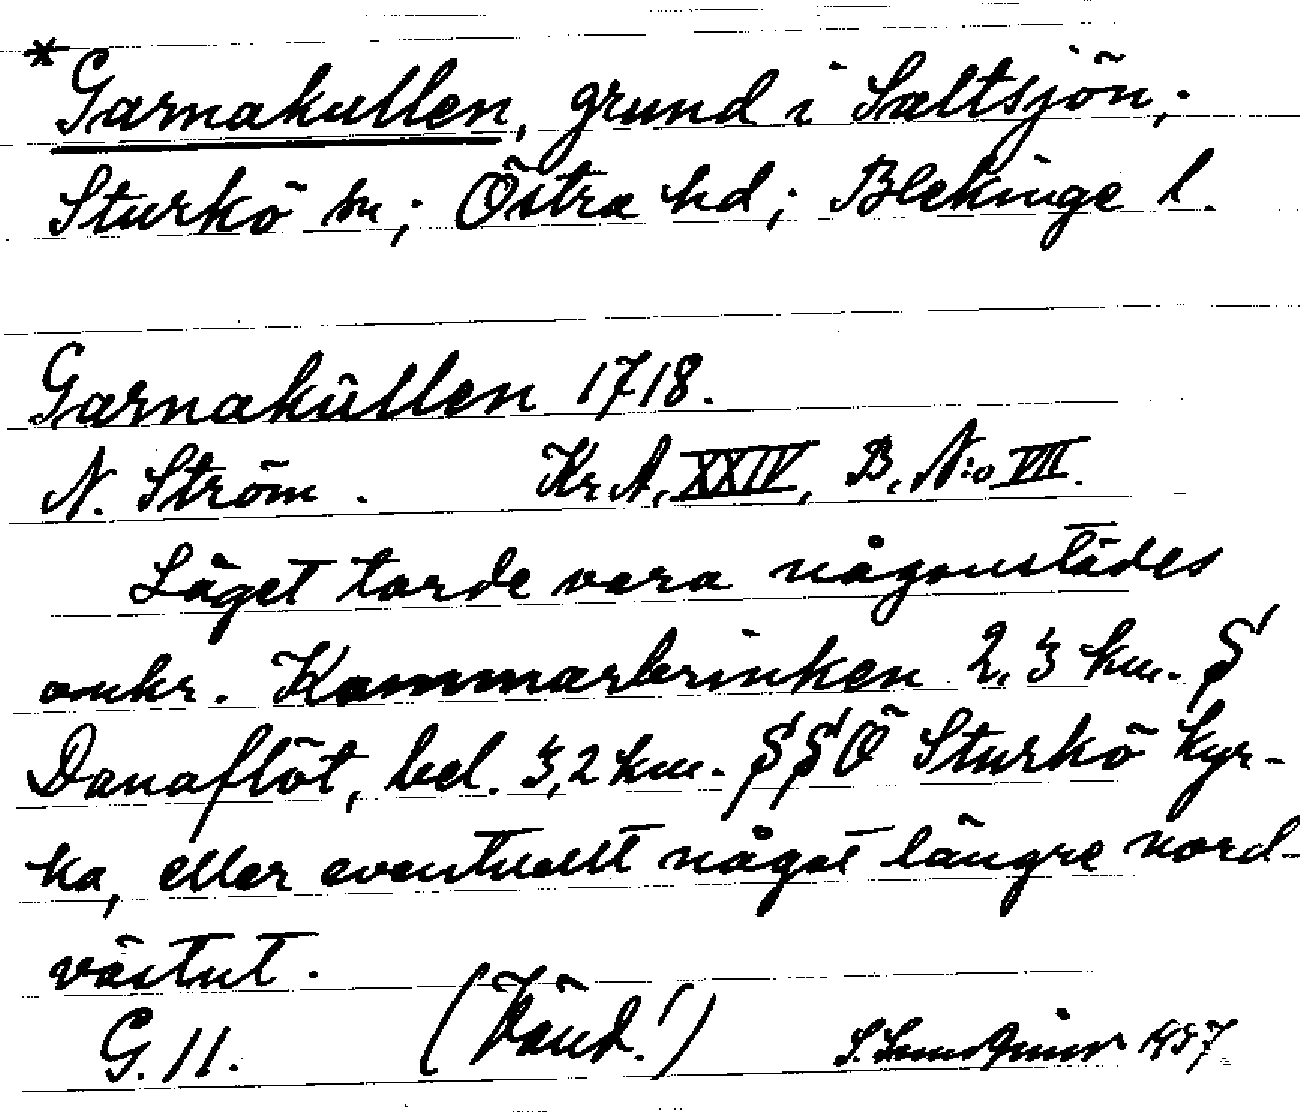 *Garnakullen, grund i Saltsjön;
Sturkö sn; Östra hd; Blekinge l.
Garnakũllen 1718.
N. Ström. Kr.A, XXIV, B, N:o VII.
Läget torde vara någonstädes
omkr. Kammarbrinken 2,3 km. S
Danaflöt, bel. 3,2 km. SSÖ Sturkö kyr-
ka, eller eventuellt något längre nord-
västut.
G. 11. (Vänd!) 1957